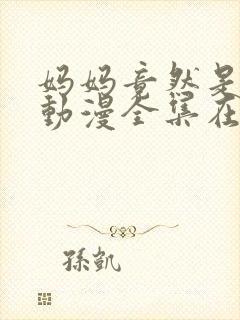 妈妈竟然是
動漫全集在
孫凱